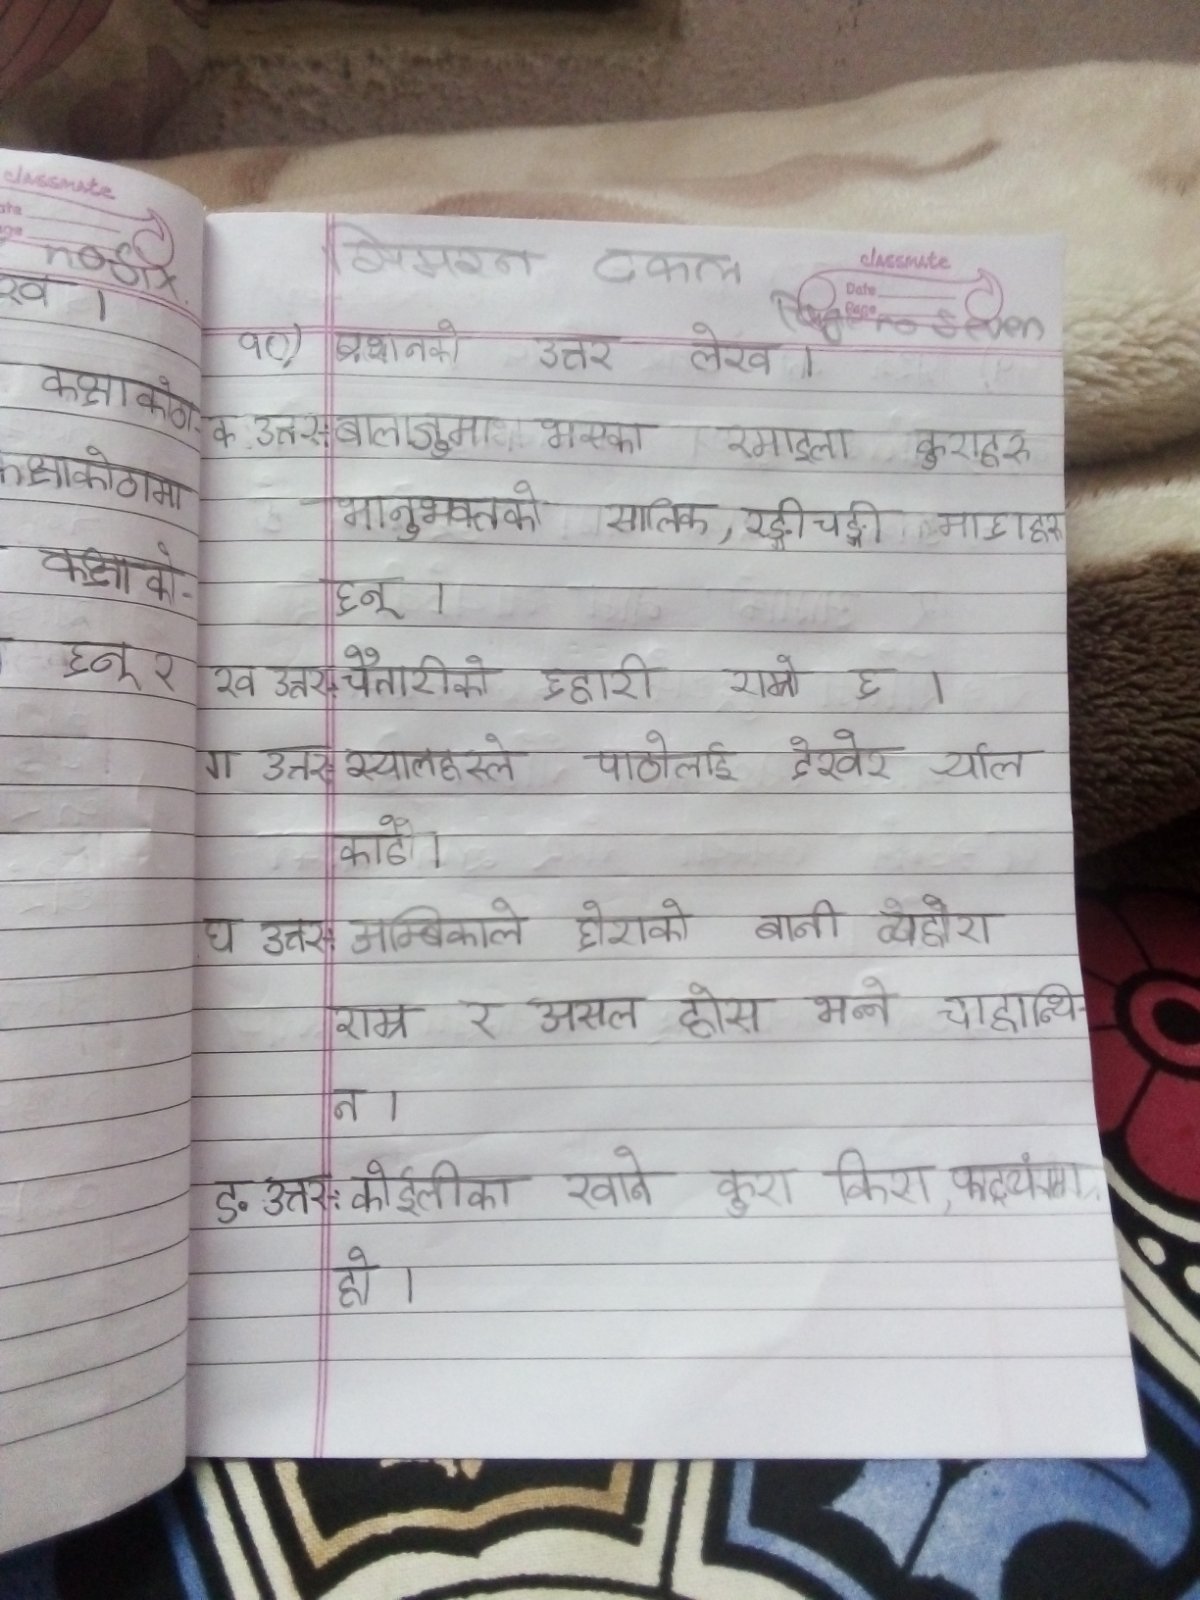 classmate
no Six.
ख ।
कक्षाकोठा-
कक्षाकोठामा
कक्षाको-
छन् र
classmate
Date
Page
Page no Seven
१०) प्रश्नको उत्तर लेख ।
क उत्तर: बालाजुमा भएका रमाइला कुराहरु
भानुभक्तको सालिक, रङ्गीचङ्गी माछाहरू
छन् ।
ख उत्तर: चौतारीको छहारी राम्रो छ ।
ग उत्तर: स्यालहरुले पाठोलाई देखेर र्याल
काढे ।
घ उत्तर: अम्बिकाले छोराको बानी व्येहोरा
राम्र र असल होस भन्ने चाहान्थि-
न ।
ङ. उत्तर: कोईलीका खाने कुरा किरा,
हो ।